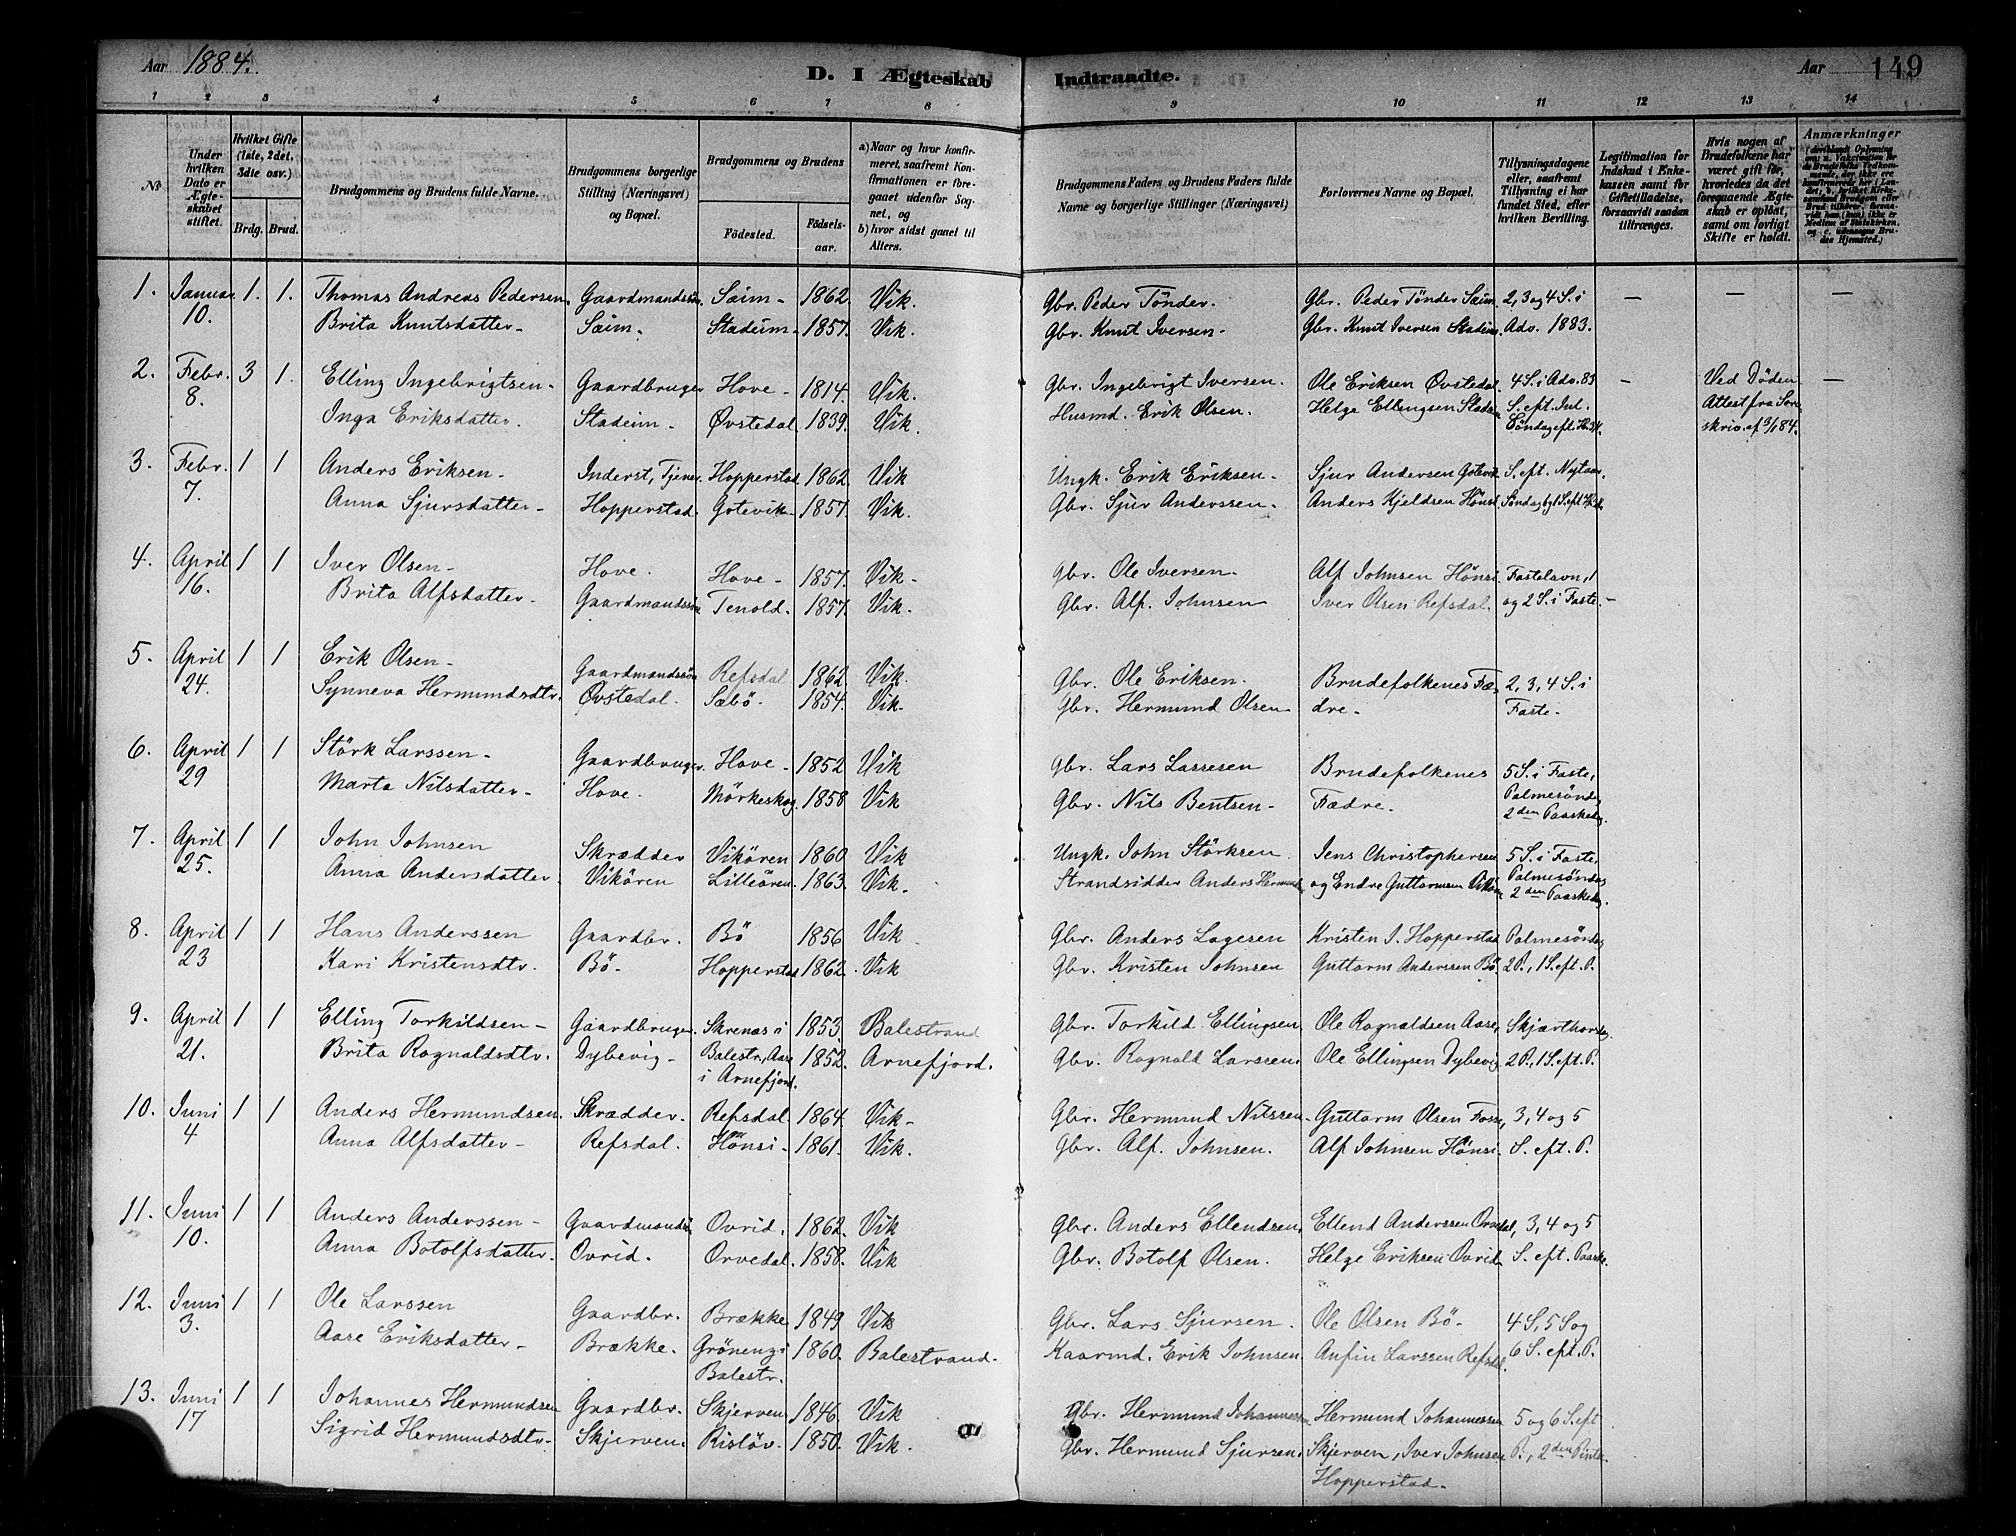 Aar 1884.
D. I Ægteskab Indtraadte.
Aar 149
1 2 3 4 5 6 7 8 9 10 11 12 13 14
№
Under hvilken Dato er Ægteskabet stiftet.
Hvilket Gifte (1ste, 2det, 3dte osv.)
Brdg. Brud.
Brudgommens og Brudens fulde Navne.
Brudgommens borgerlige Stilling (Næringsvei) og Bopæl.
Brudgommens og Brudens
Födested.
Födselsaar.
a) Naar og hvor konfirmeret, saafremt Konfirmationen er foregaaet udenfor Sognet, og
b) hvor sidst gaaet til Alters.
Brudgommens Faders og Brudens Faders fulde Navne og borgerlige Stillinger (Næringsvei)
Forlovernes Navne og Bopæl.
Tillysningsdagene eller, saafremt Tillysning ei har fundet Sted, efter hvilken Bevilling.
Legitimation for Indskud i Enkekassen samt for Giftetilladelse, forsaavidt saadan tiltrænges.
Hvis nogen af Brudefolkene har været gift før, hvorledes da det foregaaende Ægteskab er oplöst, samt om lovligt Skifte er holdt.
Anmærkninger
1. Januar 10. 1. 1. Thomas Andreas Pedersen. Gaardmandssön Sæim - 1862. Vik. Gbr. Peder Tönder. Gbr. Peder Tönder Sæim 2, 3 og 4 S. i — — —
Brita Knutsdatter - Sæim. Stadeim - 1857. Vik. Gbr. Knut Iversen - Gbr. Knut Iversen Stadeim Adv. 1883.
2. Febr. 8. 3 1. Elling Ingebrigtsen - Gaardbruger Hove - 1814. Vik. Gbr. Ingebrigt Iversen. Ole Eriksen Øvstedal 4 S. i Adv. 83 — Ved Döden —
Inga Eriksdatter. Stadeim - Øvstedal 1839. Vik. Husmd. Erik Olsen. Helge Ellingsen Stadeim S. eft. Jul. Attest fra Sorenskriv. af 3/1 84.
Söndag eft. H.3K.
3. Febr. 7. 1 1 Anders Eriksen - Inderst, Tjener Hopperstad 1862. Vik Ungk. Erik Eriksen - Sjur Andersen Gotevik S. eft. Nytaar,
Anna Sjursdatter - Hopperstad. Gotevik - 1857. Vik. Gbr. Sjur Anderssen - Anders Kjeldsen Hönsi
4. April 16. 1 1 Iver Olsen - Hove. Hove - 1857. Vik - Gbr. Ole Iversen - Alf Johnsen Hönsi Fastelavn, 1
Brita Alfsdatter. Gaardmandssön Tenold. 1857. Vik. Gbr. Alf. Johnsen Iver Olsen Refsdal. og 2 S. i Faste. -
5. April 24. 1 1 Erik Olsen - Gaardmandssön Refsdal 1862 Vik. Gbr. Ole Eriksen. Brudefolkenes Fæ- 2, 3, 4 S. i
Synneva Hermundsdtr. Øvstedal. Sæbö. 1854. Vik. Gbr. Hermund Olsen - dre - Faste -
6. April 29 1 1 Störk Larssen - Gaardbruger. Hove - 1852 Vik Gbr. Lars Larsesen Brudefolkenes 5 S. i Faste,
Marta Nilsdatter - Hove. Mörkeskog 1858 Vik Gbr. Nils Bentsen - Fædre. Palmesöndag
2den Paaskedag.
7. April 25. 1 1 John Johnsen Skrædder Vikören 1860 Vik Ungk. John Störksen. Jens Christophersen 5 S. i Faste,
Anna Andersdatter. Vikören Lilleören. 1863. Vik. Strandsidder Anders Hermunds og Endre Guttormsen Vikören Palmesöndag
2den Paaskedag
8. April 23 1 1 Hans Anderssen Gaardbr. Bö 1856 Vik Gbr. Anders Lagesen Kristen J. Hopperstad Palmesöndag
Kari Kristensdtr. Bö - Hopperstad 1862. Vik Gbr. Kristen Johnsen Guttorm Anderssen Bö 2 P., 1 S. eft. P.
9. April 21. 1 1 Elling Torkildsen - Gaardbruger. Skrenæs i 1853. Balestrand Gbr. Torkild Ellingsen Ole Rognaldsen Aase, Skjærthorsdag,
Brita Rognaldsdtr. Dybevig - Balestr., Aase i Arnefjord. 1852. Arnefjord. Gbr. Rognald Larssen. Ole Ellingsen Dybevig 2 P., 1 S. eft. P.
10. Juni 4 1 1 Anders Hermundsen. Skrædder. Refsdal. 1864. Vik - Gbr. Hermund Nilssen - Guttorm Olsen Fosse, 3, 4 og 5
Anna Alfsdatter - Refsdal. Hönsi - 1861. Vik. Gbr. Alf. Johnsen. Alf Johnsen Hönsi. S. eft. P.
11. Juni 10. 1 1 Anders Anderssen - Gaardmandss. Ovrid. 1862. Vik Gbr. Anders Ellendsen. Ellend Anderssen Orvedal, 3, 4 og 5
Anna Botolfsdatter. Ovrid. Orvedal. 1858. Vik Gbr. Botolf Olsen. Helge Eriksen Ovrid S. eft. Paaske.
12. Juni 3. 1 1 Ole Larssen Gaardbr. Brække 1849 Vik Gbr. Lars Sjursen. Ole Olsen Bö - 4 S, 5 S og
Aase Eriksdatter - Brække. Gröneng i Balestr. 1860. Balestrand. Kaarmd. Erik Johnsen Anfin Larssen Refsdal. 6 S. eft. P.
13. Juni 17 1 1 Johannes Hermundsen Gaardbr. Skjerven 1846. Vik Gbr. Hermund Johannessen Hermund Johannessen 5 og 6 S. eft
Sigrid Hermundsdtr. Skjerven. Rislöv. 1850. Vik. Gbr. Hermund Sjursen. Skjerven, Iver Johnsen P., 2den Pintse
Hopperstad.